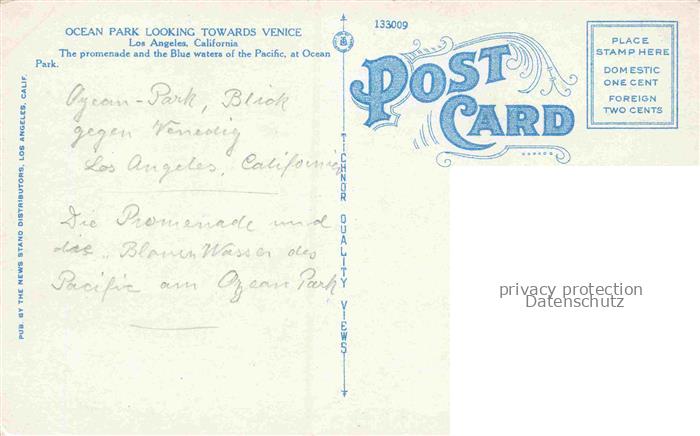 OCEAN PARK LOOKING TOWARDS VENICE
Los Angeles, California
The promenade and the Blue waters of the Pacific, at Ocean
Park.
133009
POST
CARD
PLACE
STAMP HERE
DOMESTIC
ONE CENT
FOREIGN
TWO CENTS
Ozean-Park, Blick
gegen Venedig
Los Angeles, California
Die Promenade und
die „Blauen Wasser des
Pacific am Ozean Park
TICHNOR QUALITY VIEWS
PUB. BY THE NEWS STAND DISTRIBUTORS, LOS ANGELES, CALIF.
privacy protection
Datenschutz